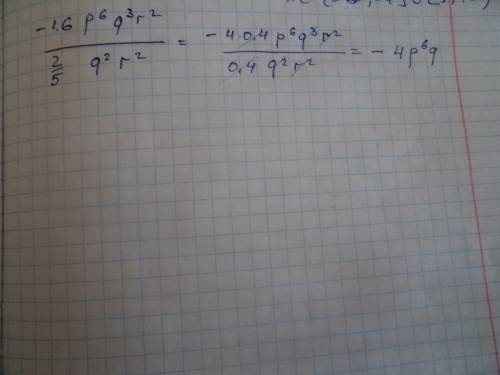 -1.6 p⁶ q³ r² / 2/5 q² r² = - 4·0,4 p⁶ q³ r² / 0,4 q² r² = - 4p⁶q